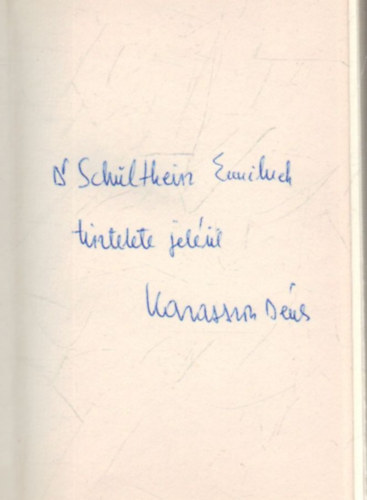 Dr Schultheisz Emilnek
tisztelete jeléül
Karasszon Dénes